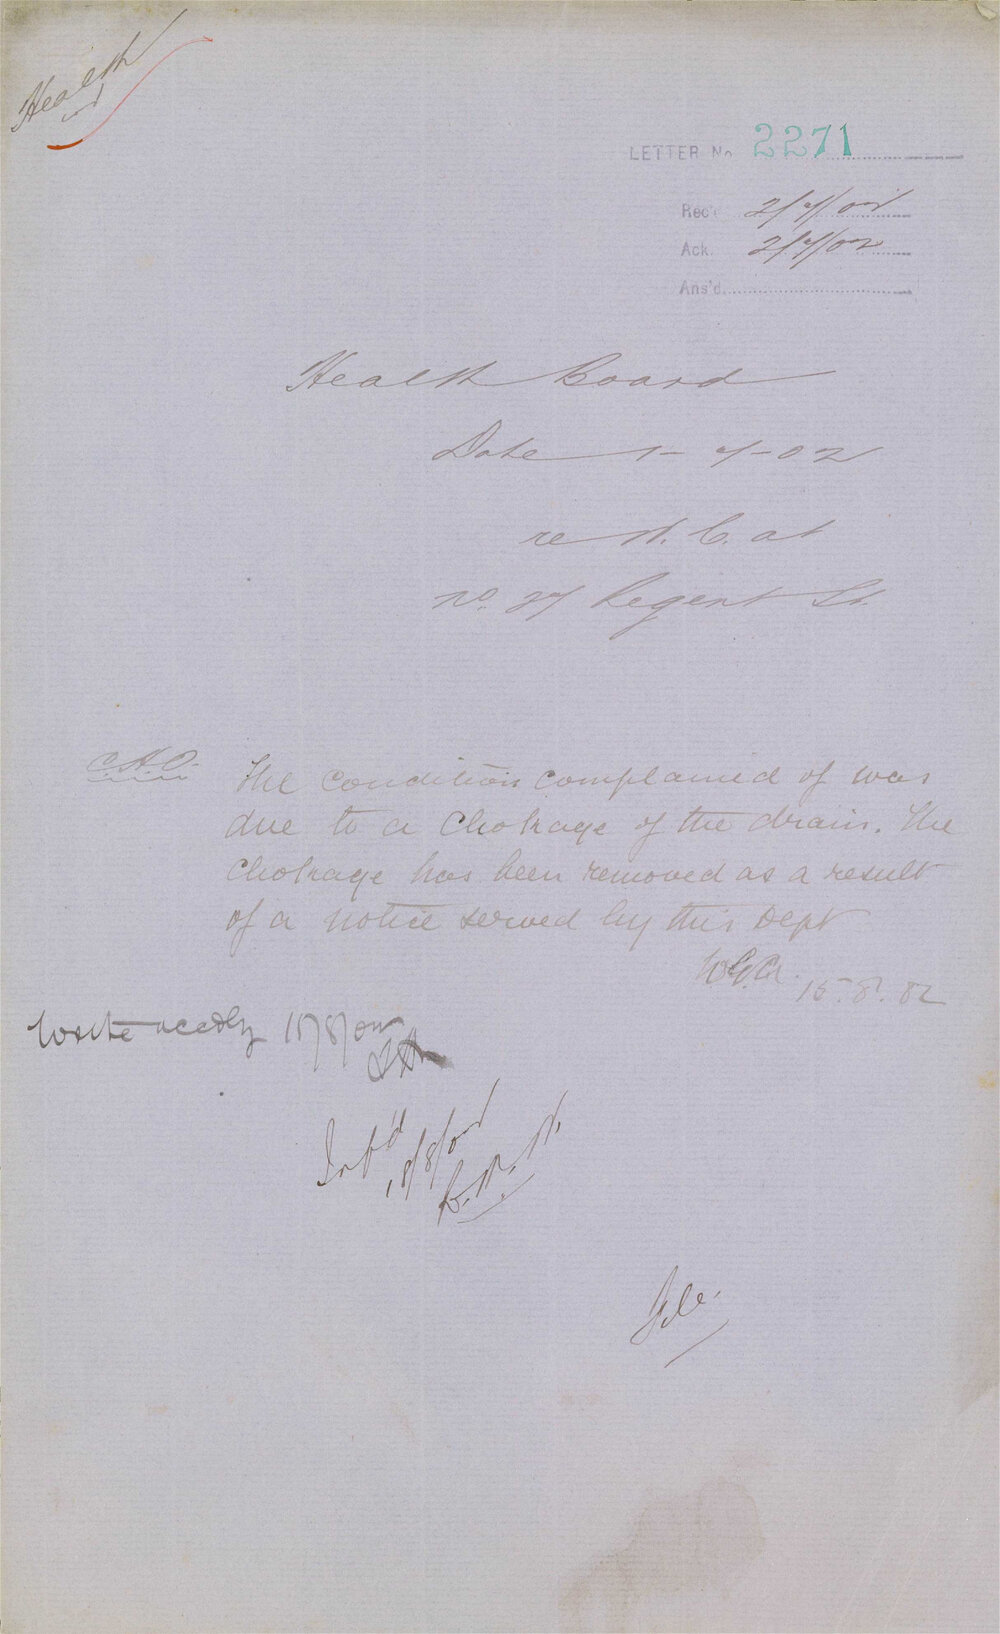 Health
LETTER No 2271
Rec'd 2/7/02
Ack. 2/7/02
Ans'd
Health Board
Date 1-7-02
re W.C. at
no. 27 Regent St.
C.H.O.
The condition complained of was
due to a chokage of the drain. The
chokage has been removed as a result
of a notice served by this Dept
15.8.02
Write accdly 15/8/02
Inf'd
18/8/02
File.